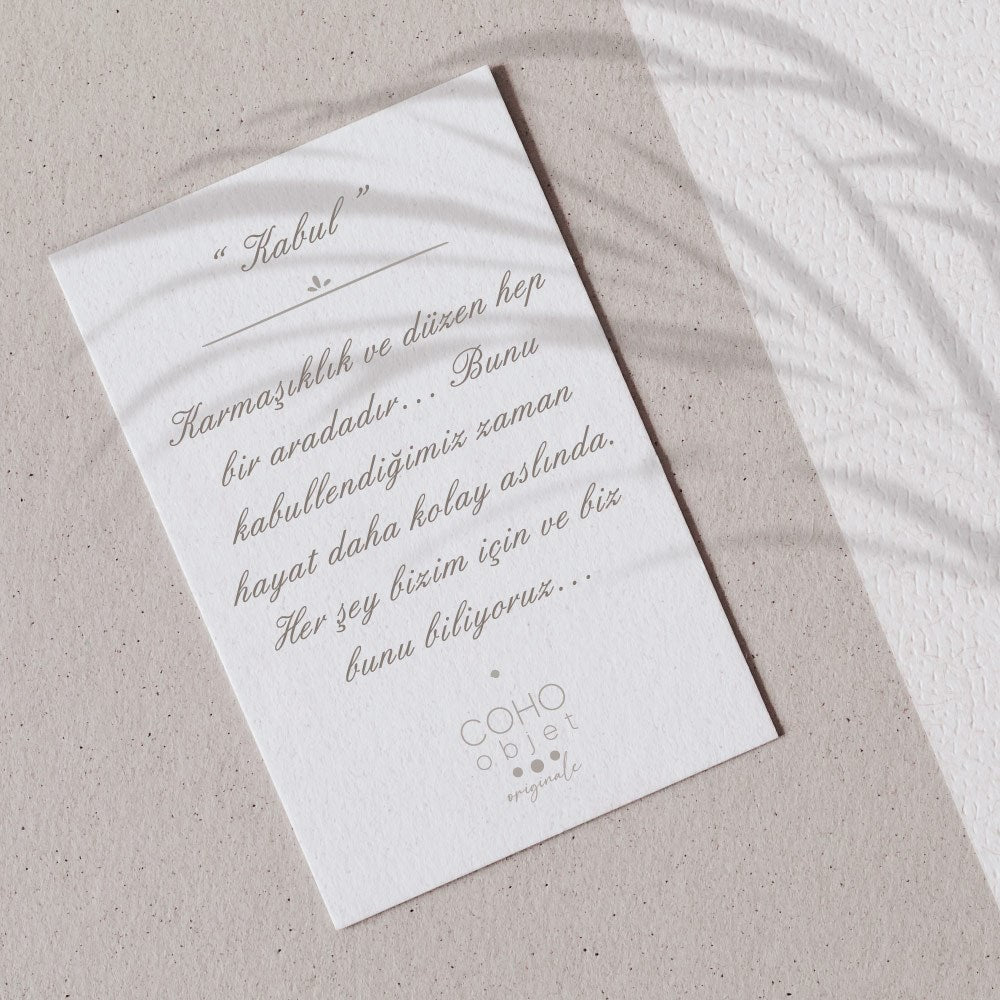 “ Kabul ”
Karmaşıklık ve düzen hep
bir aradadır... Bunu
kabullendiğimiz zaman
hayat daha kolay aslında.
Her şey bizim için ve biz
bunu biliyoruz...
COHO
objet
originale